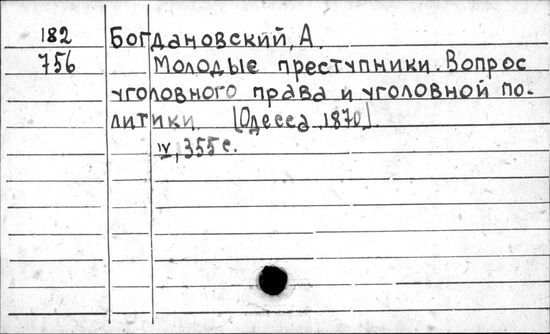 182 Богдановский, А.
756 Молодые преступники. Вопрос
уголовного права и уголовной по-
литики. [Одесса 1870].
IV, 355 с.